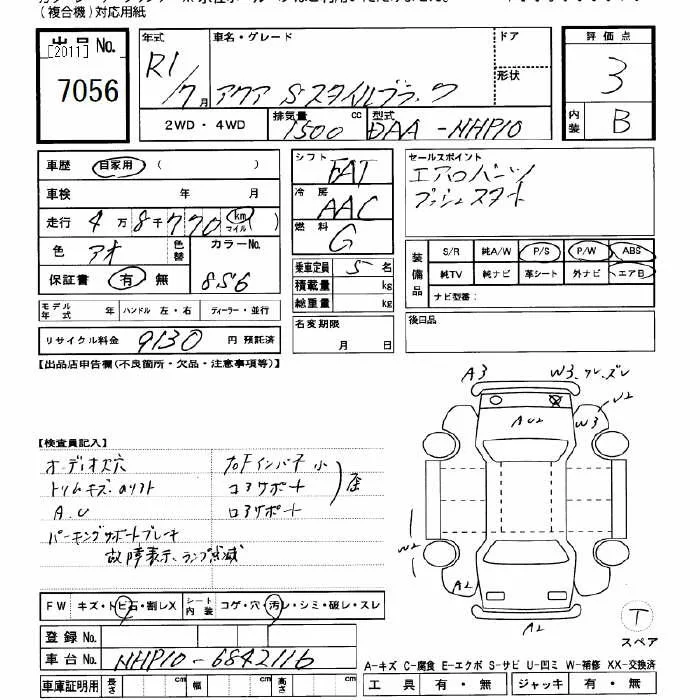 (複合機)対応用紙
出品 No.
[2011]
7056
年式
R1/7月
車名・グレード
アクア Sスタイルブラック
ドア
形状
評価点
3
内装
B
2WD・4WD
排気量
1500 cc
型式
DAA-NHP10
車歴
自家用 ( )
車検 年 月
走行 4万8千770 km マイル
色
アオ
色替
カラーNo.
856
保証書 有 無
シフト
FAT
冷房
AAC
燃料
G
セールスポイント
エアロバンパー
プッシュスタート
装備品
S/R 純A/W P/S P/W ABS
純TV 純ナビ 革シート 外ナビ エアB
ナビ型番:
乗車定員 5 名
積載量 kg
総重量 kg
モデル年式 ハンドル 左・右 ディーラー・並行
リサイクル料金 9130 円 預託済
名変期限
月 日
後日品
【出品店申告欄(不良箇所・欠品・注意事項等)】
A3
W3.ワレ.ズレ
U2
AU2
W3
【検査員記入】
オーディオ穴
トリムキズ.
A.U
パーキングサポートブレーキ
故障表示、ランプ点滅
コアサポート
U2
A2
A2
T
スペア
FW キズ・ト・ヒ石・割レX
シート内装 コゲ・穴・汚レ・シミ・破レ・スレ
登録 No.
車台 No. NHP10-6842116
車庫証明用 長さ cm 幅 cm 高さ cm
A-キズ C-腐食 E-エクボ S-サビ U-凹ミ W-補修 XX-交換済
工具 有・無 ジャッキ 有・無